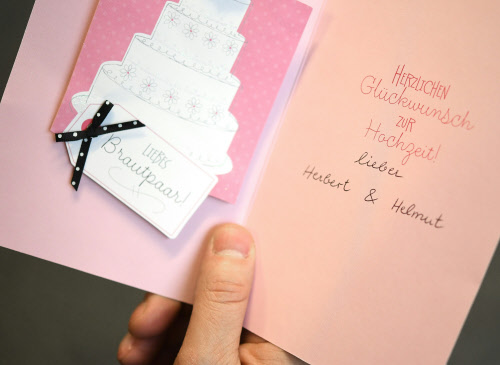 LIEBES
Brautpaar!
HERZLICHEN
Glückwunsch
ZUR
Hochzeit!
lieber
Herbert & Helmut